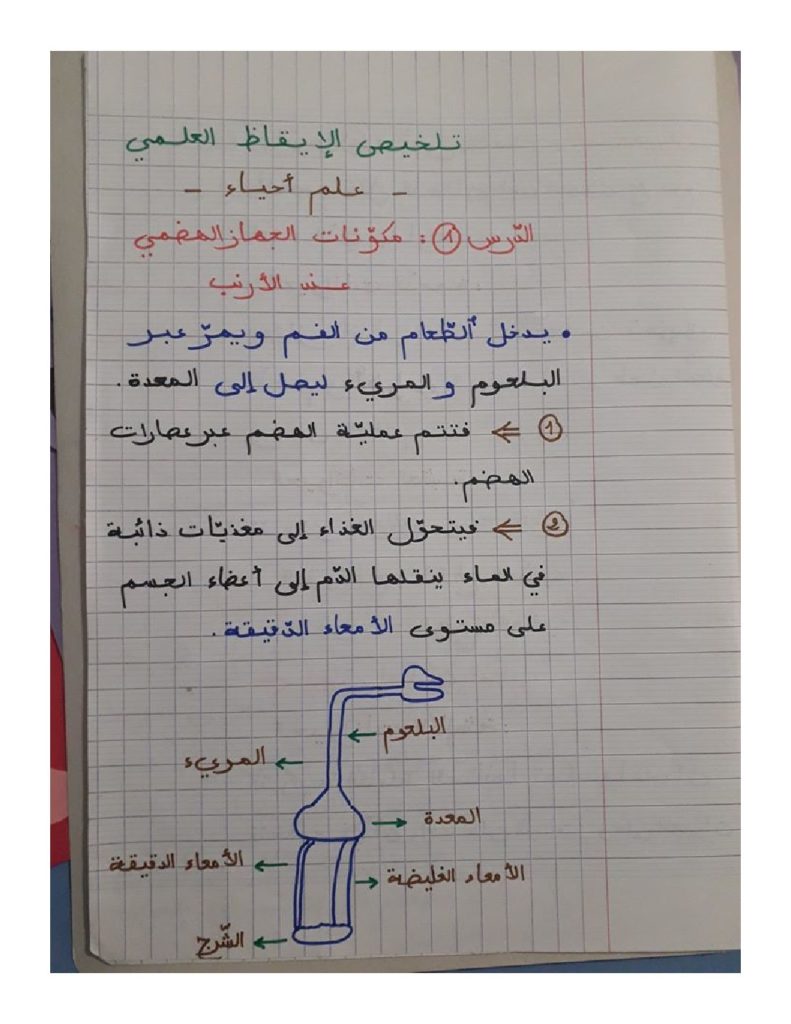 تلخيص الإيقاظ العلمي
- علم أحياء -
الدّرس ①: مكوّنات الجهاز الهضمي
عند الأرنب
• يدخل الطّعام من الفم ويمرّ عبر
البلعوم والمريء ليصل إلى المعدة.
① ⇐ فتتم عمليّة الهضم عبر عصارات
الهضم.
② ⇐ فيتحوّل الغذاء إلى مغذيّات ذائبة
في الماء ينقلها الدّم إلى أعضاء الجسم
على مستوى الأمعاء الدّقيقة.
البلعوم
المريء
المعدة
الأمعاء الدقيقة
الأمعاء الغليضة
الشّرج